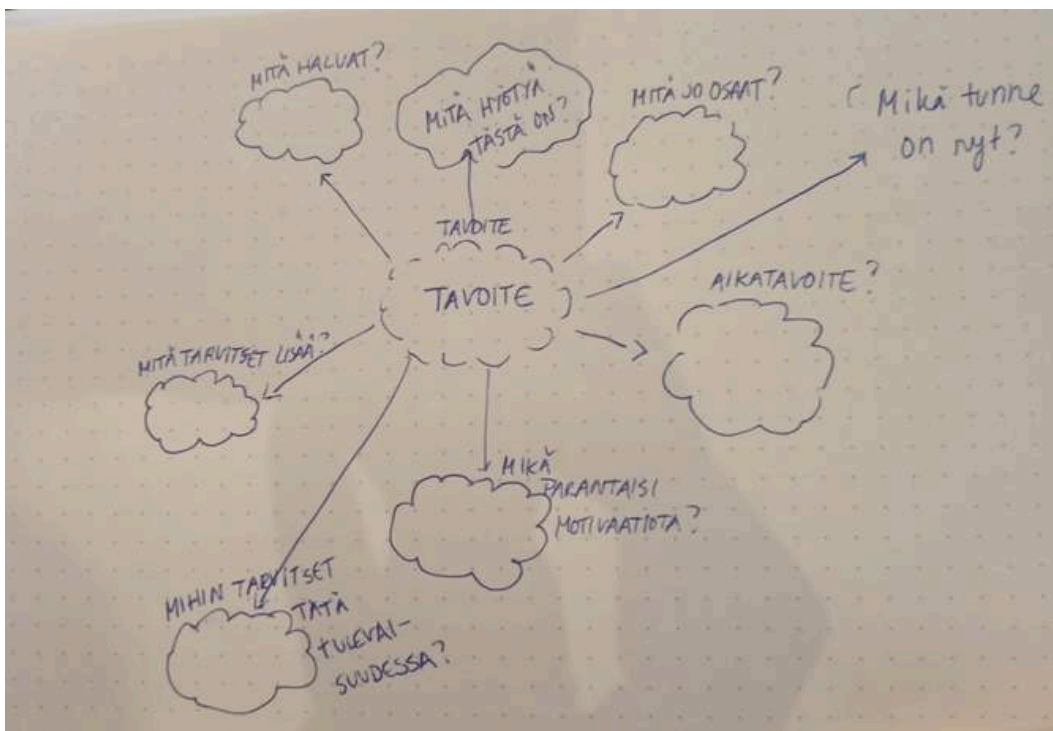 MITÄ HALUAT?
MITÄ HYÖTYÄ
TÄSTÄ ON?
MITÄ JO OSAAT?
Mikä tunne
on nyt?
TAVOITE
TAVOITE
AIKATAVOITE?
MITÄ TARVITSET LISÄÄ?
MIKÄ
PARANTAISI
MOTIVAATIOTA?
MIHIN TARVITSET
TÄTÄ
TULEVAI-
SUUDESSA?